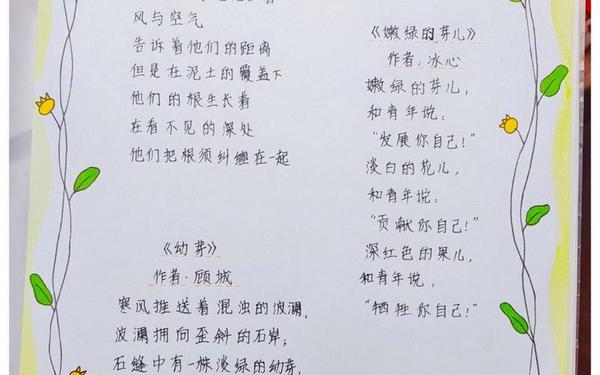 风与空气
告诉着他们的距离
但是在泥土的覆盖下
他们的根生长着
在看不见的深处
他们把根须纠缠在一起
《幼芽》
作者·顾城
寒风推送着混浊的波澜,
波澜拥向歪斜的石岸;
石缝中有一株淡绿的幼芽,
《嫩绿的芽儿》
作者:冰心
嫩绿的芽儿,
和青年说:
“发展你自己!”
淡白的花儿,
和青年说:
“贡献你自己!”
深红色的果儿,
和青年说:
“牺牲你自己!”